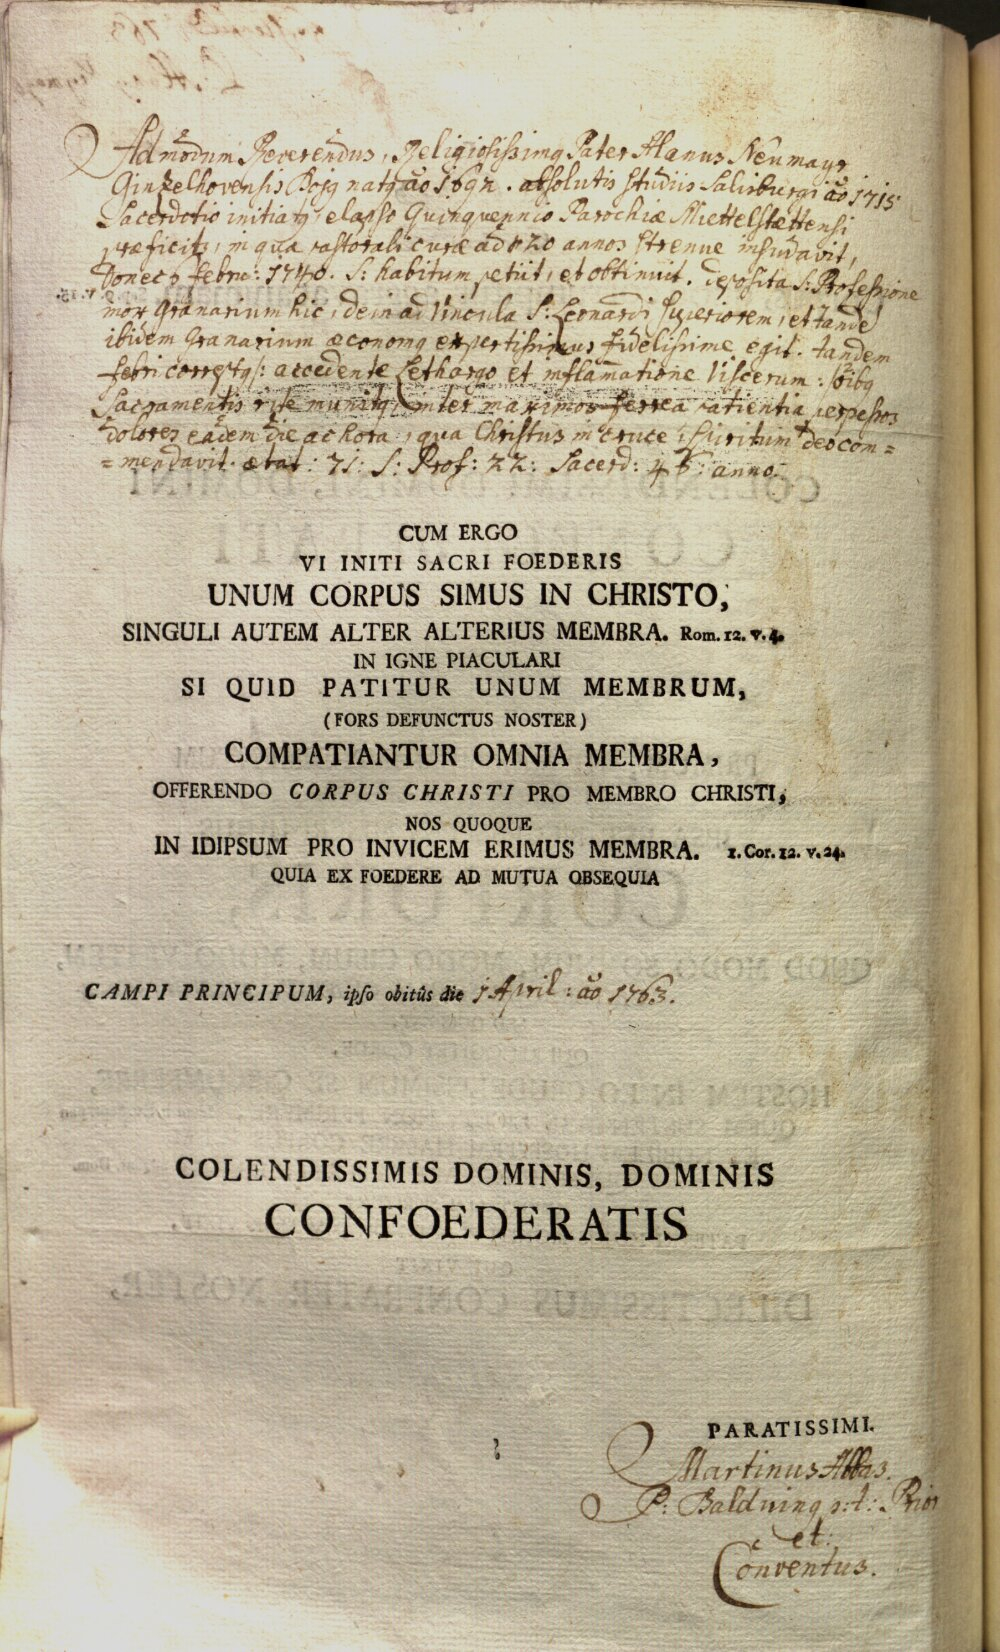 Admodum Reverendus, Religiosissimq Pater Alanus Neumayr
Ginzelhovensis Bojq natq ao 1692. absolutis studiis Salisburgi ao 1715
Sacerdotio initiatq, elapso Quinquennio Parochiæ Miettelstettensi
præficitq, in qua pastorali curæ ad 20 annos strenue insudavit,
Donec febru: 1740. S: habitum petiit, et obtinuit. deposita S: Professione
mox Granarium hic, dein ad Vincula S: Leonardi Superiorem, et tande
ibidem Granarium œconomq expertissimus fidelissime egit. tandem
febri correptq: accedente Lethargo et inflamatione Viscerum: oibq
Sacramentis rite munitq, inter maximos ferrea patientia perpessos
dolores eadem die ac hora, qua Christus in cruce spiritum deo com=
=mendavit. ætat: 71. S: Prof: 22: Sacerd: anno.
CUM ERGO
VI INITI SACRI FOEDERIS
UNUM CORPUS SIMUS IN CHRISTO,
SINGULI AUTEM ALTER ALTERIUS MEMBRA. Rom. 12. v. 4.
IN IGNE PIACULARI
SI QUID PATITUR UNUM MEMBRUM,
(FORS DEFUNCTUS NOSTER)
COMPATIANTUR OMNIA MEMBRA,
OFFERENDO CORPUS CHRISTI PRO MEMBRO CHRISTI,
NOS QUOQUE
IN IDIPSUM PRO INVICEM ERIMUS MEMBRA. 1. Cor. 12. v. 24.
QUIA EX FOEDERE AD MUTUA OBSEQUIA
CAMPI PRINCIPUM, ipso obitûs die 1 April: ao 1763.
COLENDISSIMIS DOMINIS, DOMINIS
CONFOEDERATIS
PARATISSIMI.
Martinus Abbas.
P: Balduinq p: t: Prior
et
Conventus.